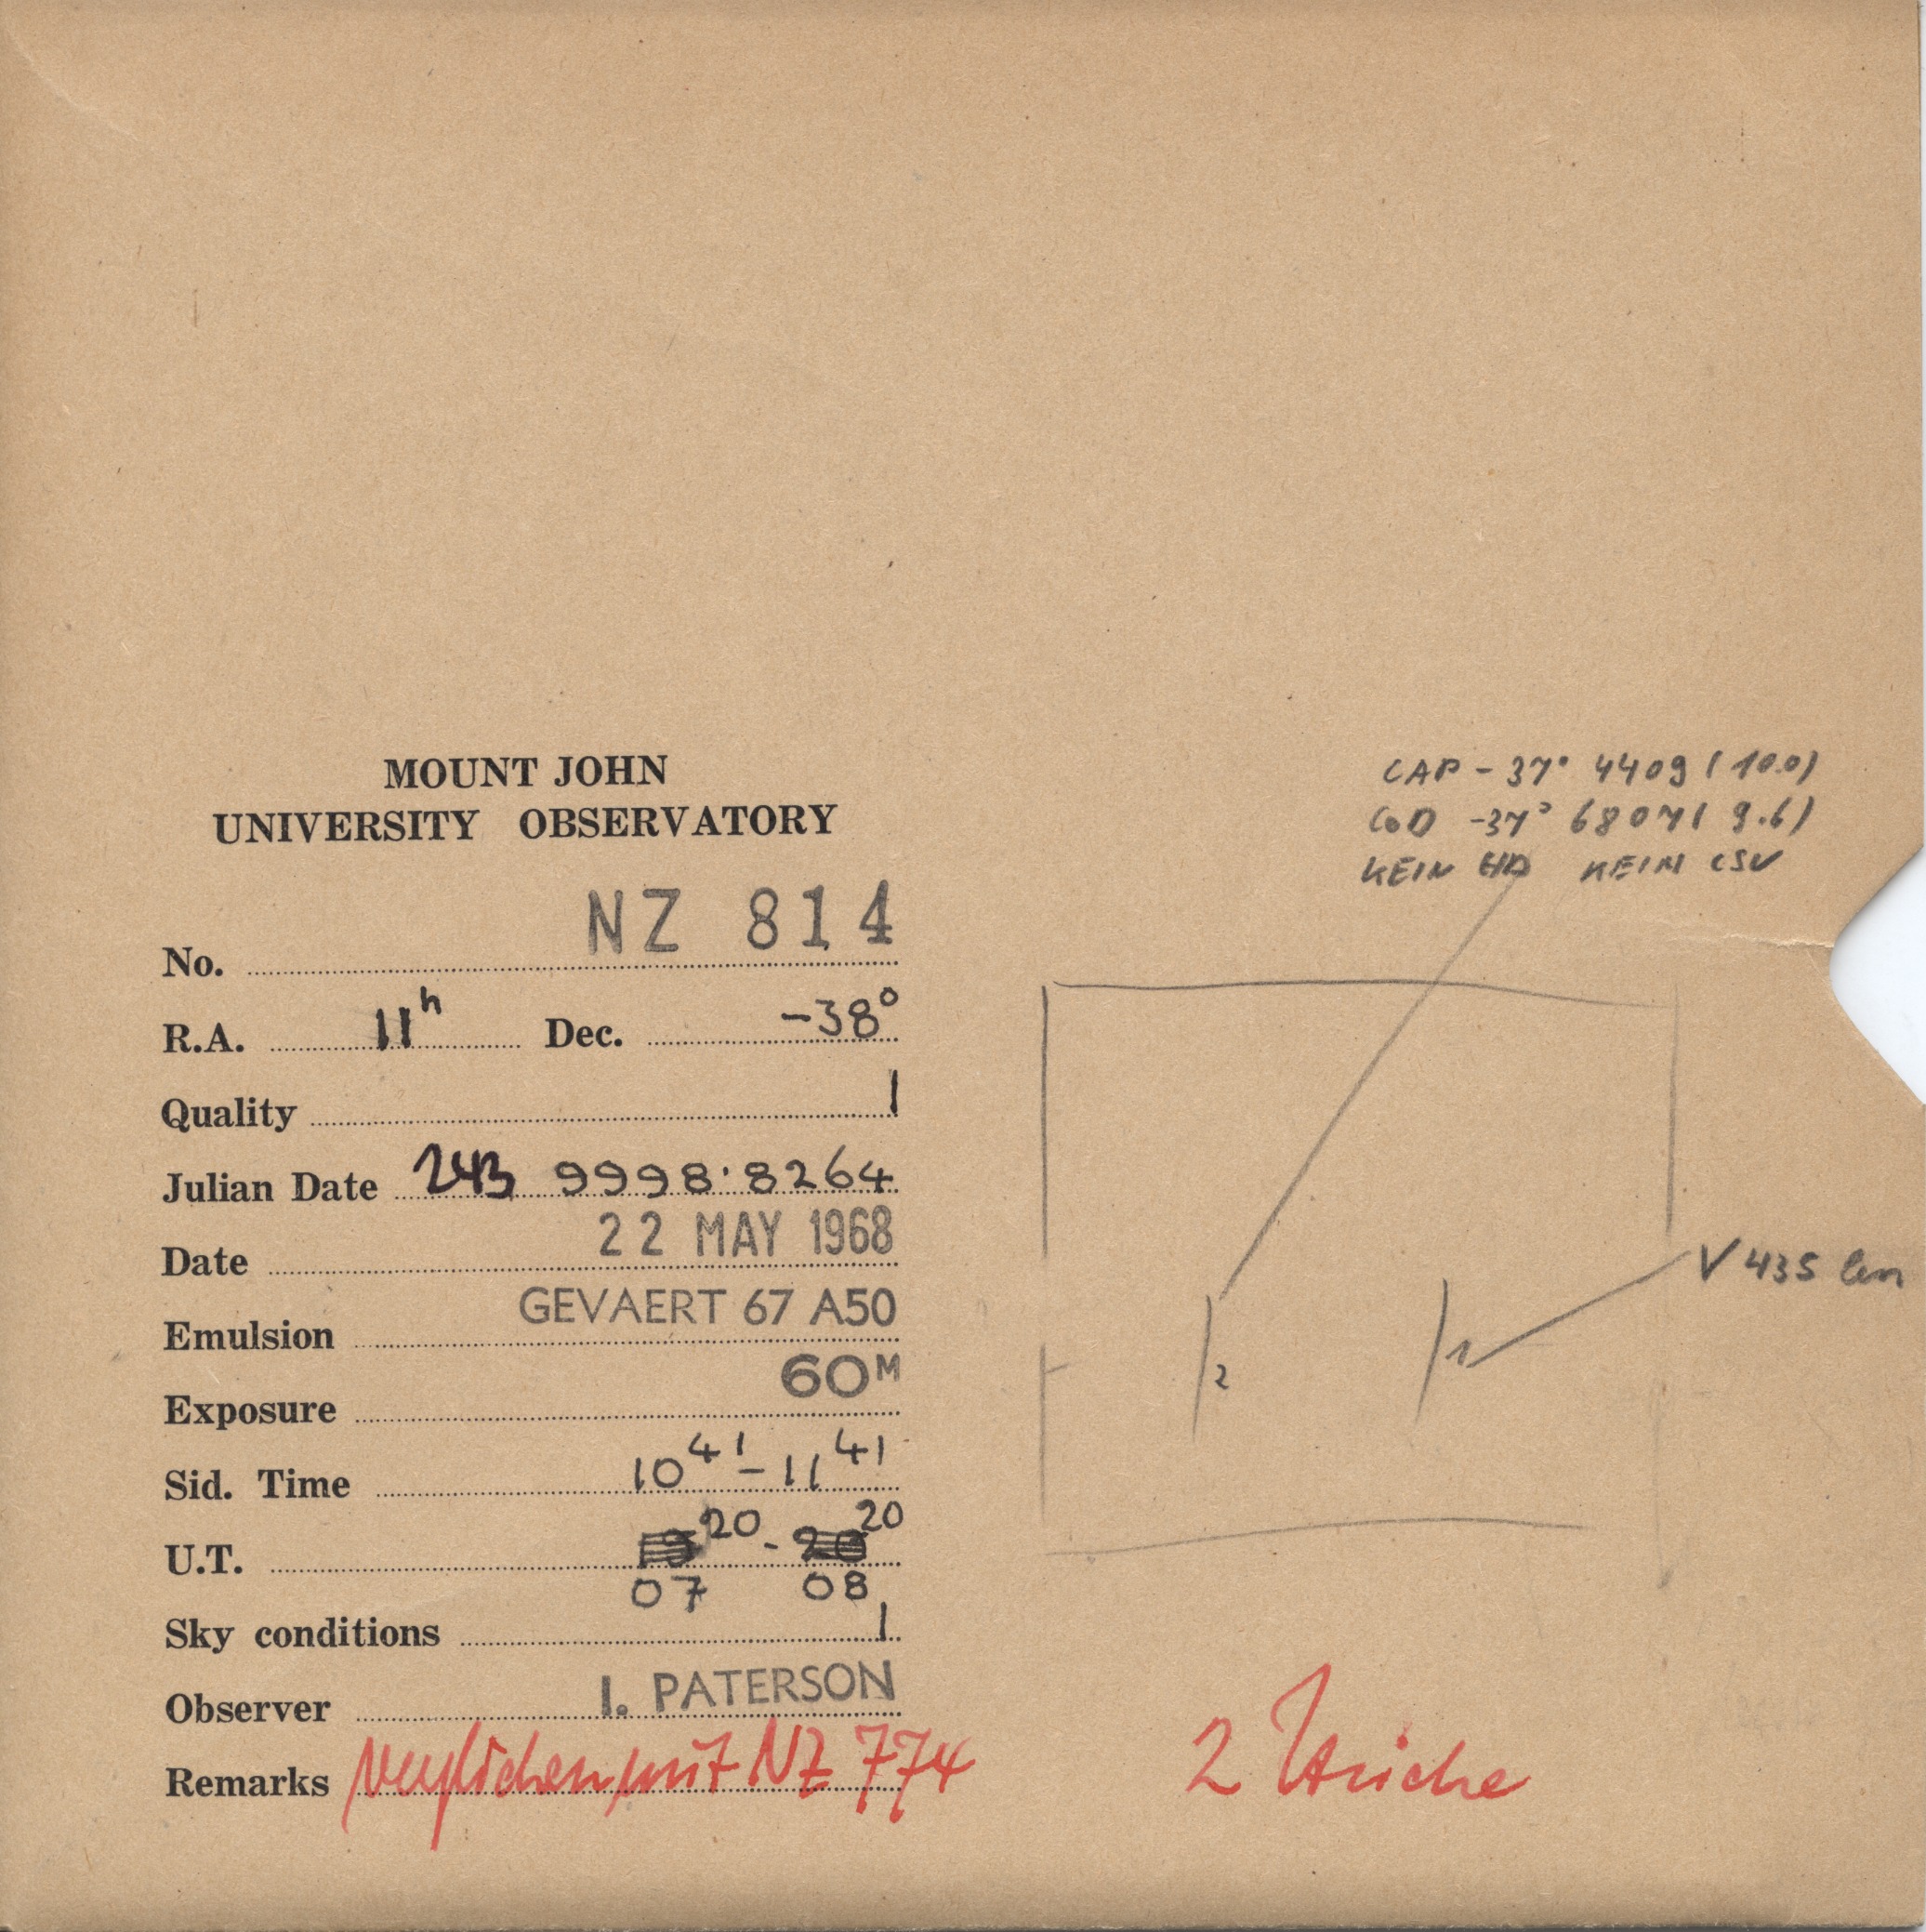 MOUNT JOHN
UNIVERSITY OBSERVATORY
No. NZ 814
R.A. 11h Dec. -38°
Quality 1
Julian Date 243 9998·8264
Date 22 MAY 1968
Emulsion GEVAERT 67 A50
Exposure 60M
Sid. Time 10 41 - 11 41
U.T. 20 - 20
07 08
Sky conditions 1
Observer I. PATERSON
Remarks verglichen mit NZ 774
CAP -37° 4409 (10.0)
CoD -37° 6807 (9.6)
KEIN HD KEIN CSV
V 435 Cen
1
2
2 Striche